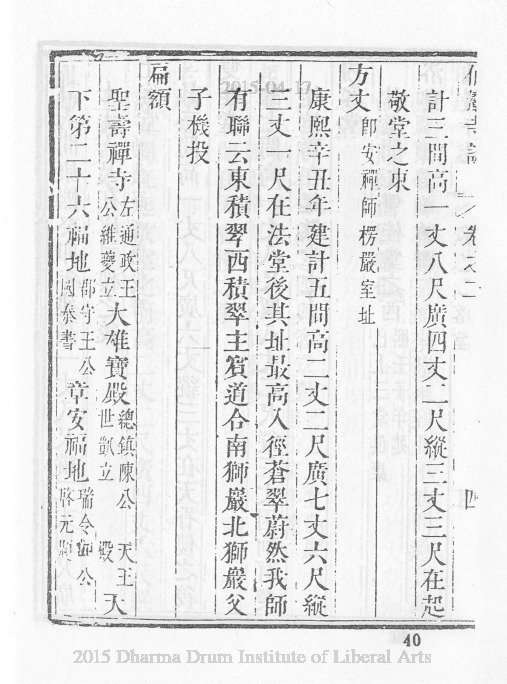 計三間高一丈八尺廣四丈二尺縱三丈三尺在起
敬堂之東
方丈 卽安禪師楞嚴室址
康熙辛丑年建計五間高二丈二尺廣七丈六尺縱
三丈一尺在法堂後其址最高入徑蒼翠蔚然我師
有聯云東積翠西積翠主賓道合南獅巖北獅巖父
子機投
扁額
聖壽禪寺 左通政王公維夔立 大雄寶殿 總鎮陳公世凱立 天王殿 天
下第二十六福地 郡守王公國泰書 章安福地 瑞令 公啓元題
2015-04-17
40
2015 Dharma Drum Institute of Liberal Arts